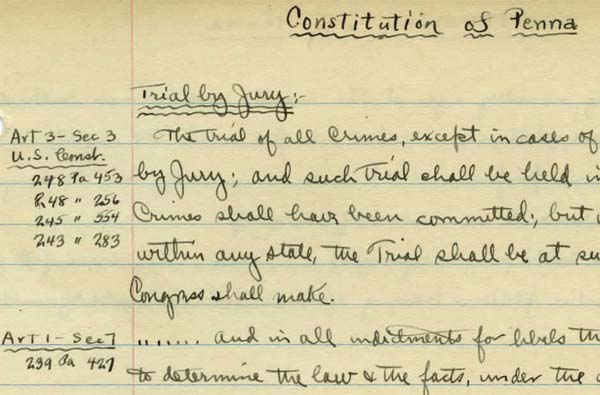 Constitution of Penna
Trial by Jury:-
Art 3 - Sec 3
U.S. Const.
248 Pa 453
248 " 256
245 " 554
243 " 283
The trial of all Crimes, except in cases of
by Jury; and such trial shall be held in
Crimes shall have been committed; but
within any state, the Trial shall be at su
Congress shall make.
Art 1 - Sec 7
239 Pa 427
....... and in all indictments for libels th
to determine the law & the facts, under the